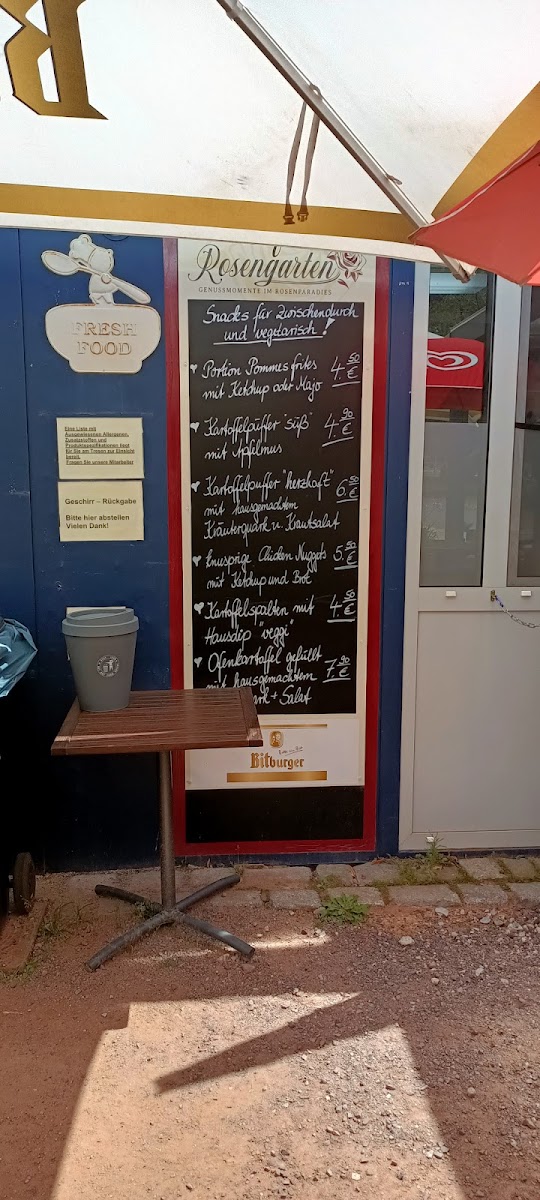 B
FRESH
FOOD
Eine Liste mit
Ausgewiesenen Allergenen,
Zusatzstoffen und
Produktspezifikationen liegt
für Sie am Tresen zur Einsicht
bereit.
Fragen Sie unsere Mitarbeiter
Geschirr – Rückgabe
Bitte hier abstellen
Vielen Dank!
Rosengarten
GENUSSMOMENTE IM ROSENPARADIES
Snacks für Zwischendurch
und vegetarisch!
Portion Pommes frites 4.50 €
mit Ketchup oder Majo
Kartoffelpuffer "süß" 4.90 €
mit Apfelmus
Kartoffelpuffer "herzhaft" 6.50 €
mit hausgemachtem
Kräuterquark u. Krautsalat
knusprige Chicken Nuggets 5.50 €
mit Ketchup und Brot
Kartoffelspalten mit 4.50 €
Hausdip "veggi"
Ofenkartoffel gefüllt 7.90 €
mit hausgemachtem
+ Salat
Bitburger